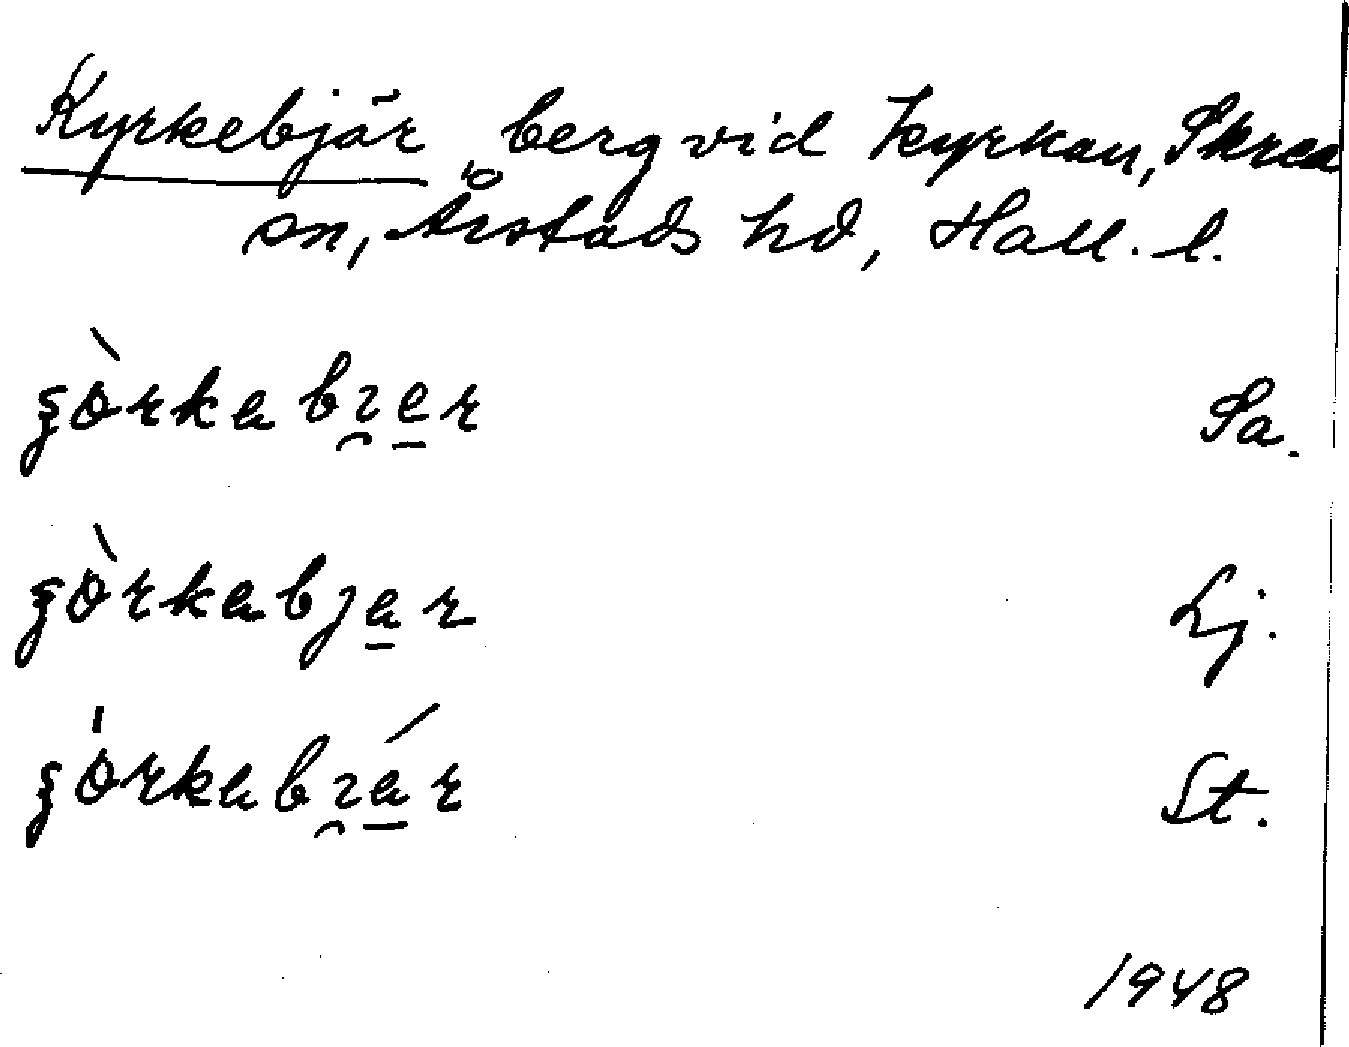 Kyrkebjär, berg vid kyrkan, Skrea
sn, Årstads hd, Hall. l.
ʂòrkabı̯er Sa.
ʂòrkabjar Lj.
ʂórkabı̯ár St.
1948